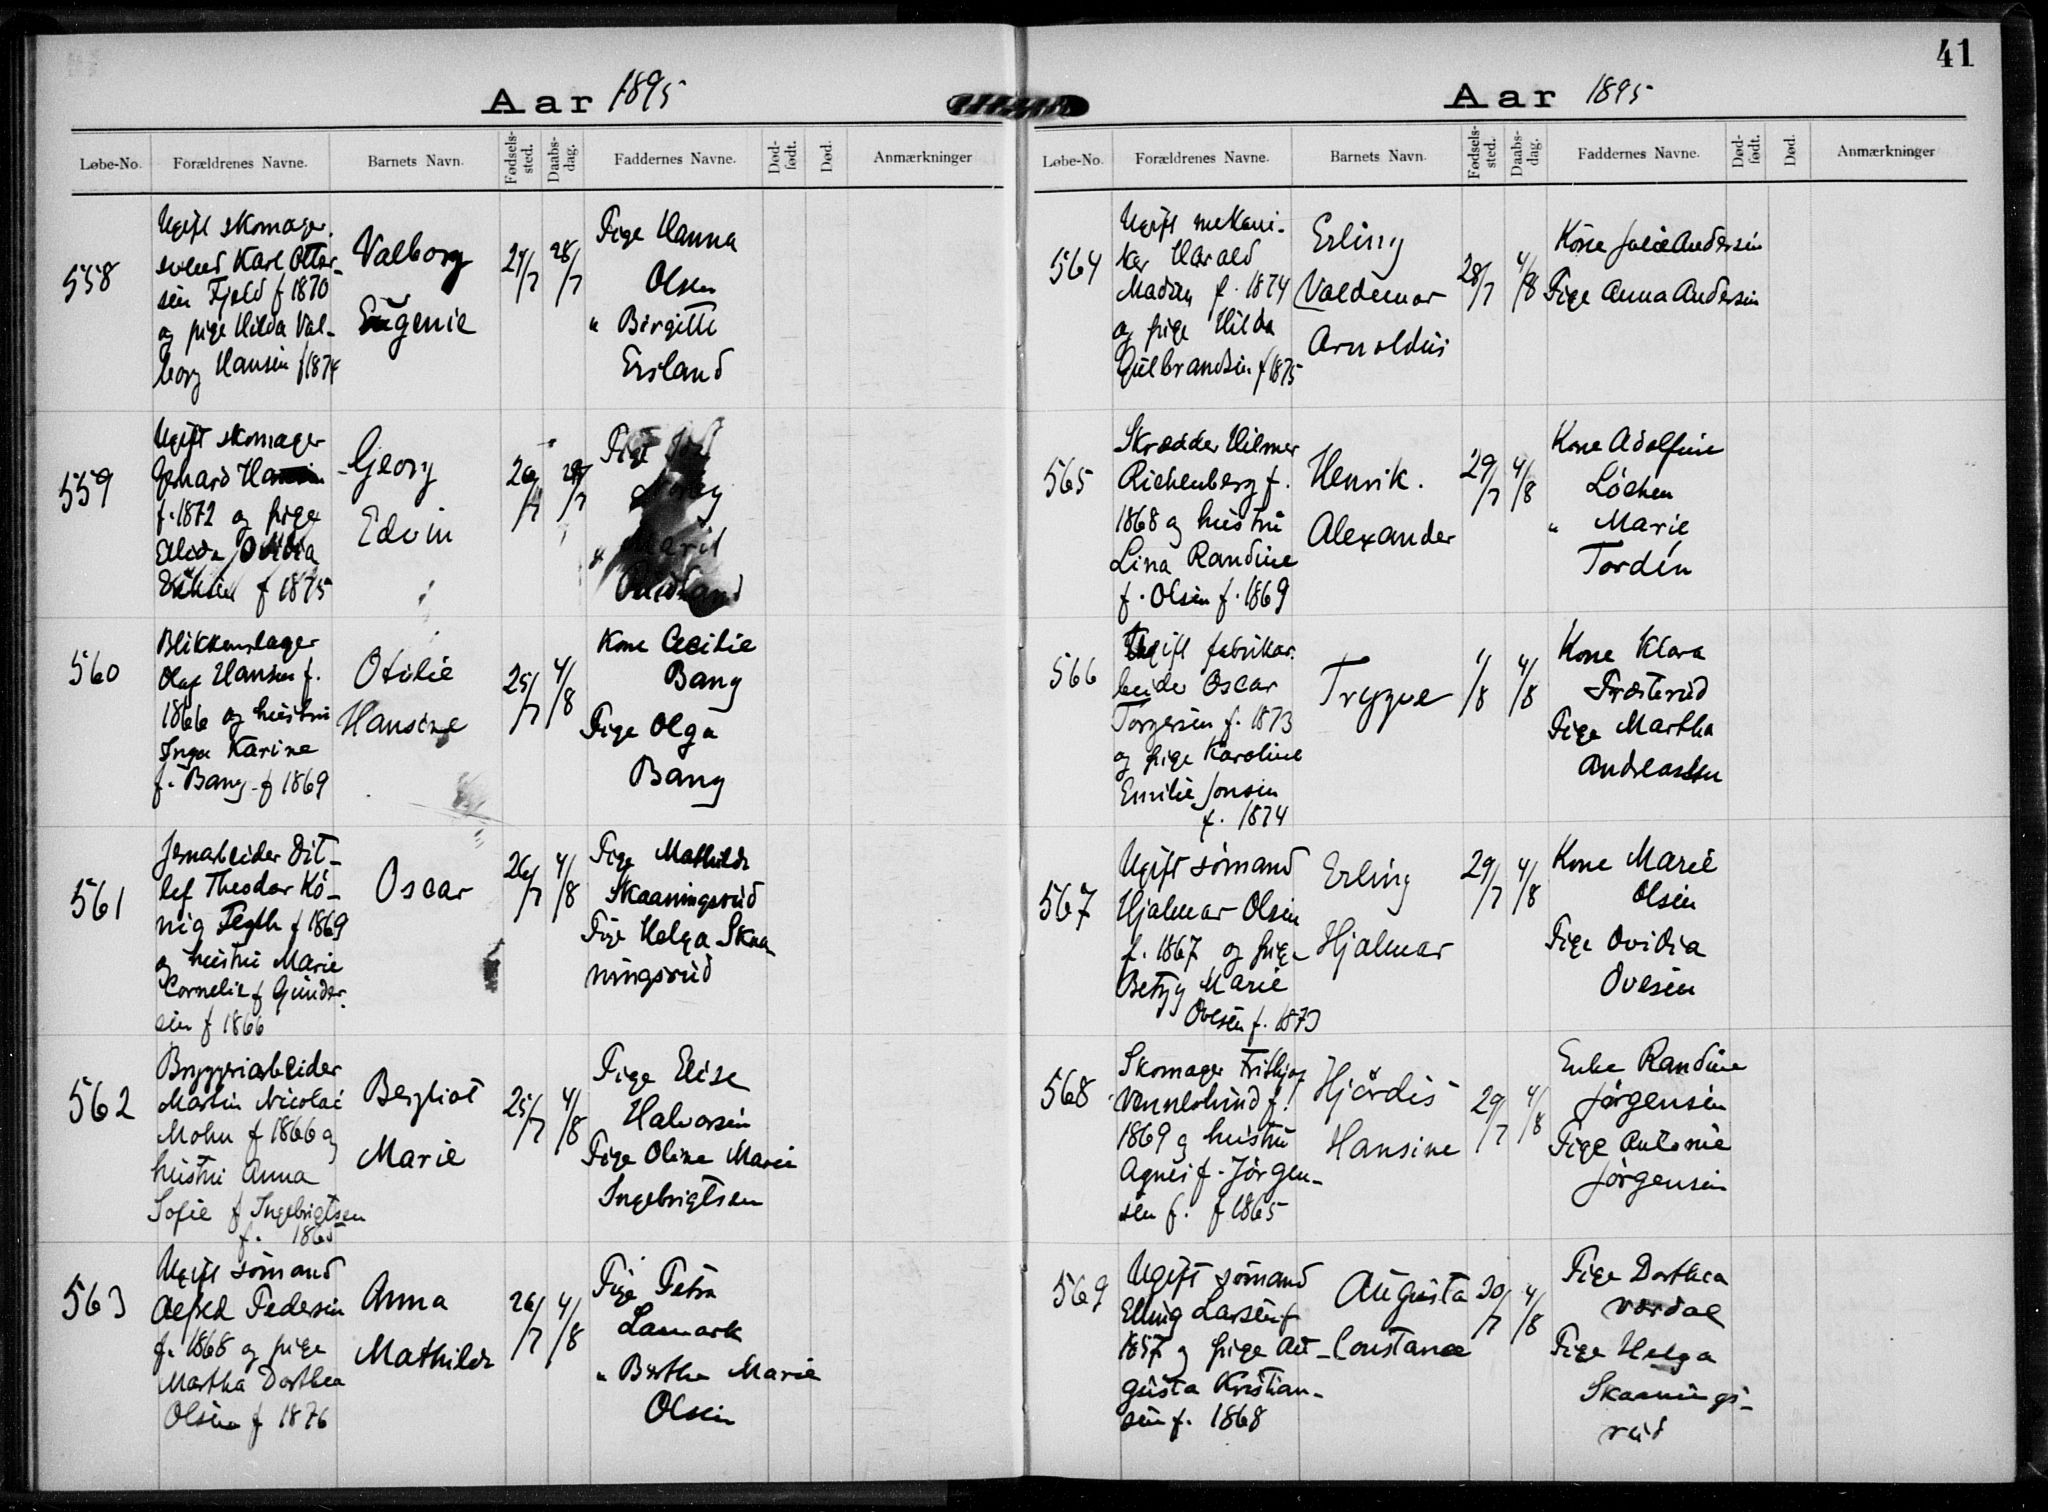 Aar 1895
Løbe-No. Forældrenes Navne. Barnets Navn. Fødsels-sted. Daabs-dag. Faddernes Navne. Død-født. Død. Anmærkninger
558
Ugift skomager-
svend Karl Otter-
sen Fjeld f 1870
og pige Hilda Val-
borg Hansen f 1874
Valborg
Eugenie
27/7
28/7
Pige Hanna
Olsen
" Birgitte
Ersland
559
Ugift skomager
f. 1872 og pige
f 1875
Georg
Edvin
26/7
28/7
Pige
560
Blikkenslager
Olaf Hansen f.
1866 og hustru
Inga Karine
f. Bang f 1869
Otilie
Hansine
25/7
4/8
Kone Cecilie
Bang
Pige Olga
Bang
561
Jernarbeider Dit-
lef Theodor Kö-
nig Fegth f 1869
og hustru Marie
Cornelie f Gunder-
sen f 1866
Oscar
26/7
4/8
Pige Mathilde
Skaaningsrud
Pige Helga Skaa
ningsrud
562
Bryggeriarbeider
Martin Nicolai
Mohn f 1866 og
hustru Anna
Sofie f Ingebrigtsen
f. 1865
Bergliot
Marie
25/7
4/8
Pige Elise
Halvorsen
Pige Oline Marie
Ingebrigtsen
563
Ugift sømand
Alfred Pedersen
f. 1868 og pige
Martha Dorthea
Olsen f 1876
Anna
Mathilde
26/7
4/8
Pige Petra
Lamark
" Berthe Marie
Olsen
41
Aar 1895
Løbe-No. Forældrenes Navne. Barnets Navn. Fødsels-sted. Daabs-dag. Faddernes Navne. Død-født. Død. Anmærkninger
564
Ugift mekani-
ker Harald
Madsen f. 1874
og pige Hilda
Gulbrandsen f 1875
Erling
Valdemar
Arnoldus
28/7
4/8
Kone Julie Andersen
Pige Anna Andersen
565
Skrædder Hilmer
Richenberg f.
1868 og hustru
Lina Randine
f. Olsen f. 1869
Henrik.
Alexander
29/7
4/8
Kone Adolfine
Löchen
" Marie
Tordén
566
Ugift fabrikar-
beider Oscar
Torgersen f. 1873
og pige Karoline
Emilie Jonsen
f. 1874
Trygve
1/8
4/8
Kone Klara
Præsterud
Pige Martha
Andreassen
567
Ugift sømand
Hjalmar Olsen
f. 1867 og pige
Betzy Marie
Ovesen f. 1873
Erling
Hjalmar
29/7
4/8
Kone Marie
Olsen
Pige Ovidia
Ovesen
568
Skomager Frithjof
1869 og hustru
Agnes f. Jørgen-
sen f. f 1865
Hjördis
Hansine
29/7
4/8
Enke Randine
Jørgensen
Pige Antonie
Jørgensen
569
Ugift sømand
Elling Larsen f
1857 og pige Au-
gusta Kristian-
sen f. 1868
Augusta
Constance
30/7
4/8
Pige Dorthea
Værdal
Pige Helga
Skaanings-
rud